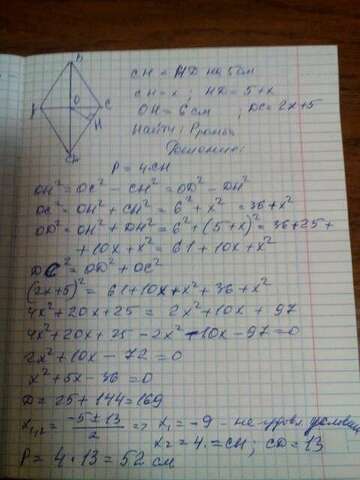 B
A O C
H
CH < HD на 5 см
CH = x ; HD = 5 + x
OH = 6 см ; DC = 2x + 5
Найти: Pромба
Решение:
P = 4·CD
OH² = OC² - CH² = OD² - DH²
OC² = OH² + CH² = 6² + x² = 36 + x²
OD² = OH² + DH² = 6² + (5 + x)² = 36 + 25 +
+ 10x + x² = 61 + 10x + x²
DC² = OD² + OC²
(2x + 5)² = 61 + 10x + x² + 36 + x²
4x² + 20x + 25 = 2x² + 10x + 97
4x² + 20x + 25 - 2x² - 10x - 97 = 0
2x² + 10x - 72 = 0
x² + 5x - 36 = 0
D = 25 + 144 = 169
x₁,₂ = (-5 ± 13)/2 ⇒ x₁ = -9 - не удовл. условию
x₂ = 4 = CH ; CD = 13
P = 4 · 13 = 52 см